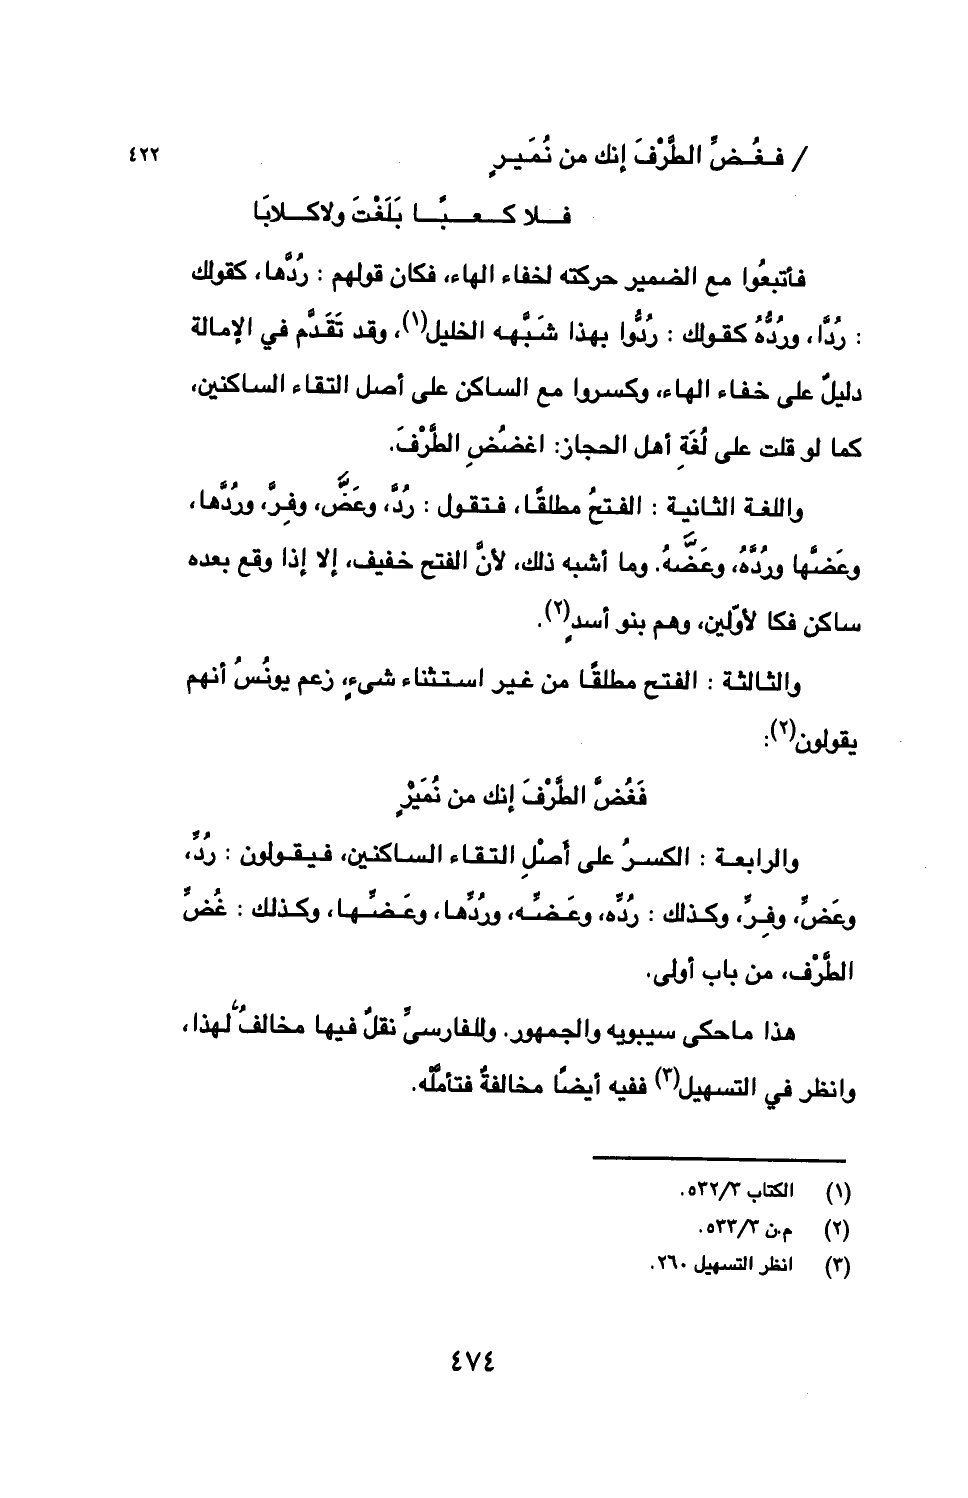 / فـغُـضِّ الطَّرْفَ إنك من نُمَـيـرٍ ٤٢٢
فـــلا كـــعـــبًـــا بَلَغْتَ ولاكـــلابَا
فأتبعُوا مع الضمير حركته لخفاء الهاء، فكان قولهم : رُدَّها، كقولك
: رُدَّا، ورُدُّهُ كقولك : رُدُّوا بهذا شَبَّهه الخليل(١)، وقد تَقَدَّم في الإمالة
دليلٌ على خفاء الهاء، وكسروا مع الساكن على أصل التقاء الساكنين،
كما لو قلت على لُغَةِ أهل الحجاز: اغضُضِ الطَّرْفَ.
واللغة الثانية : الفتحُ مطلقًا، فتقول : رُدَّ، وعَضَّ، وفِرَّ، ورُدَّها،
وعَضَّها ورُدَّهُ، وعَضَّهُ. وما أشبه ذلك، لأنَّ الفتح خفيف، إلا إذا وقع بعده
ساكن فكا لأوّلين، وهم بنو أسدٍ(٢).
والثالثة : الفتح مطلقًا من غير استثناء شيءٍ، زعم يونُسُ أنهم
يقولون(٢):
فَغُضَّ الطَّرْفَ إنك من نُمَيْرٍ
والرابعة : الكسرُ على أَصْلِ التقاء الساكنين، فيقولون : رُدِّ،
وعَضِّ، وفِرِّ، وكذلك : رُدِّه، وعَضِّه، ورُدِّها، وعَضِّها، وكذلك : غُضِّ
الطَّرْف، من باب أولى.
هذا ماحكى سيبويه والجمهور. وللفارسيِّ نقلٌ فيها مخالفٌ لهذا،
وانظر في التسهيل(٣) ففيه أيضًا مخالفةٌ فتأملّه.
(١) الكتاب ٥٣٢/٣.
(٢) م.ن ٥٣٣/٣.
(٣) انظر التسهيل ٢٦٠.
٤٧٤